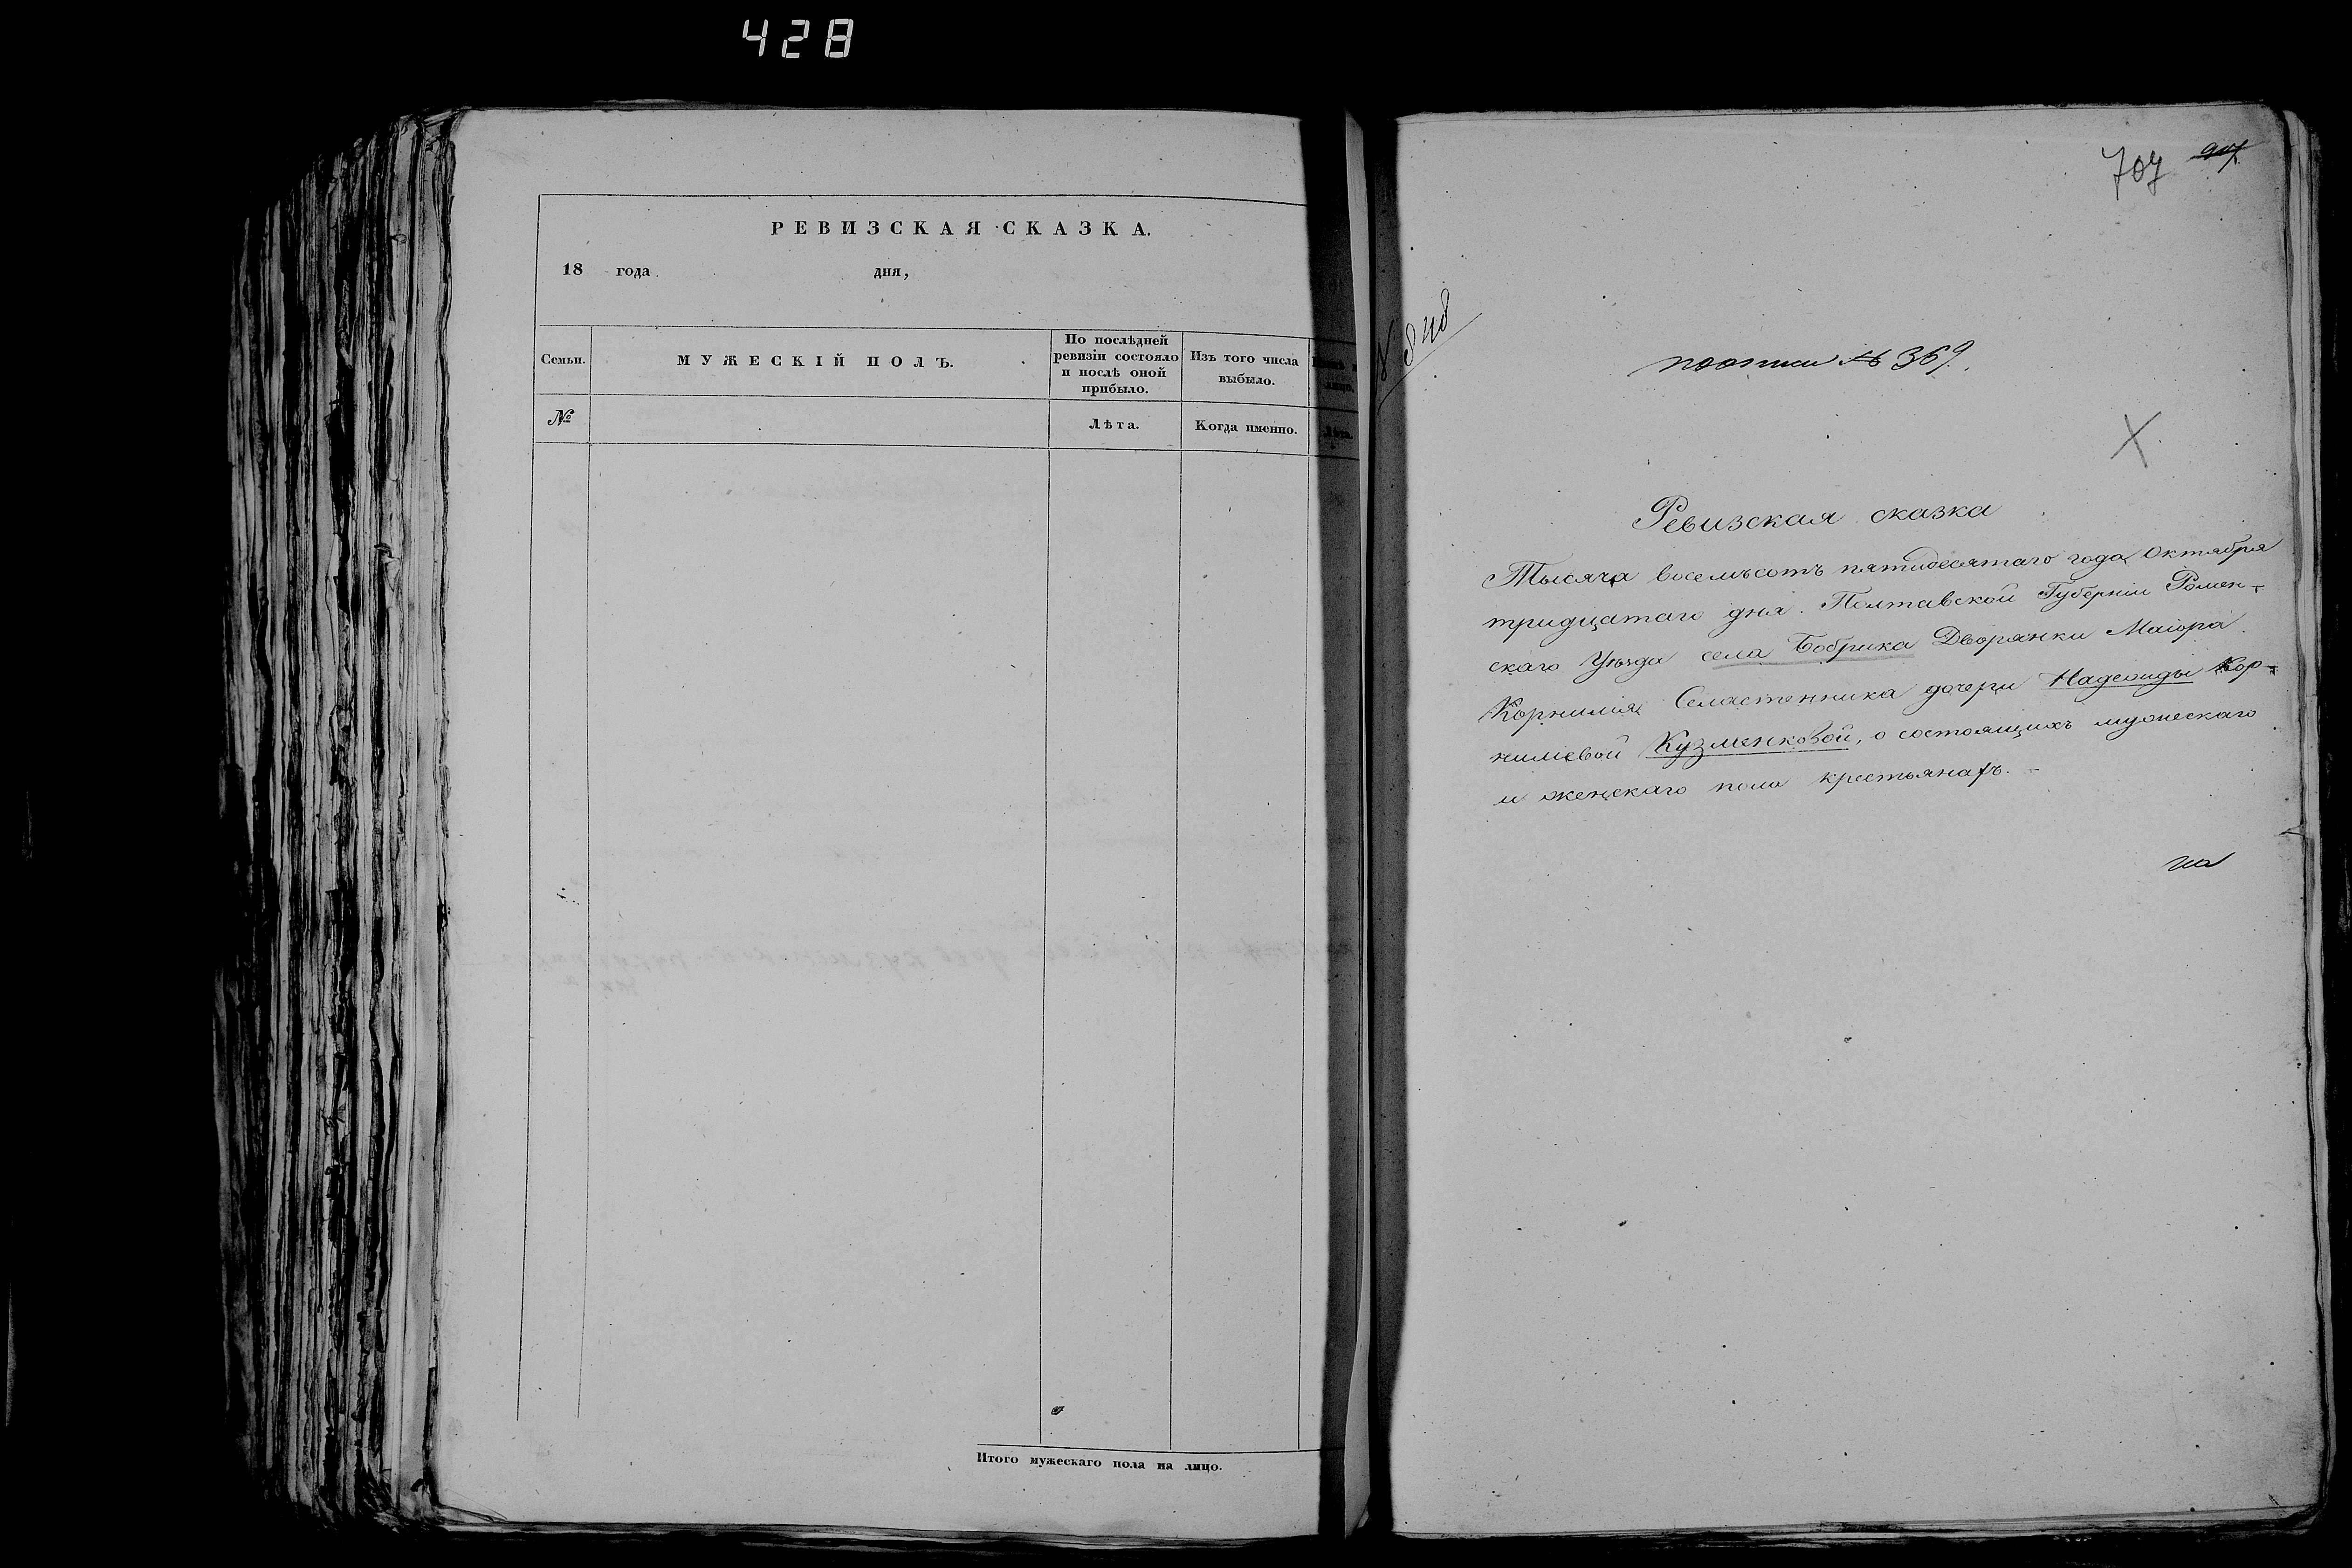 428
РЕВИЗСКАЯ СКАЗКА.
18 года дня,
Семьи.
МУЖЕСКІЙ ПОЛЪ.
По послѣдней
ревизіи состояло
и послѣ оной
прибыло.
Изъ того числа
выбыло.
№
Лѣта.
Когда именно.
Лѣта.
Итого мужескаго пола на лицо.
707
№ 369.
Ревизская сказка
Тысяча восемьсотъ пятидесятаго года Октября
тридцатаго дня. Полтавской Губерніи Ромен-
скаго Уѣзда села Бобрика Дворянки Маіора
Корнилія Селастенника дочери Надежды Кор-
ниліевой Кузменковой, о состоящихъ мужескаго
и женскаго пола крестьянахъ.
на